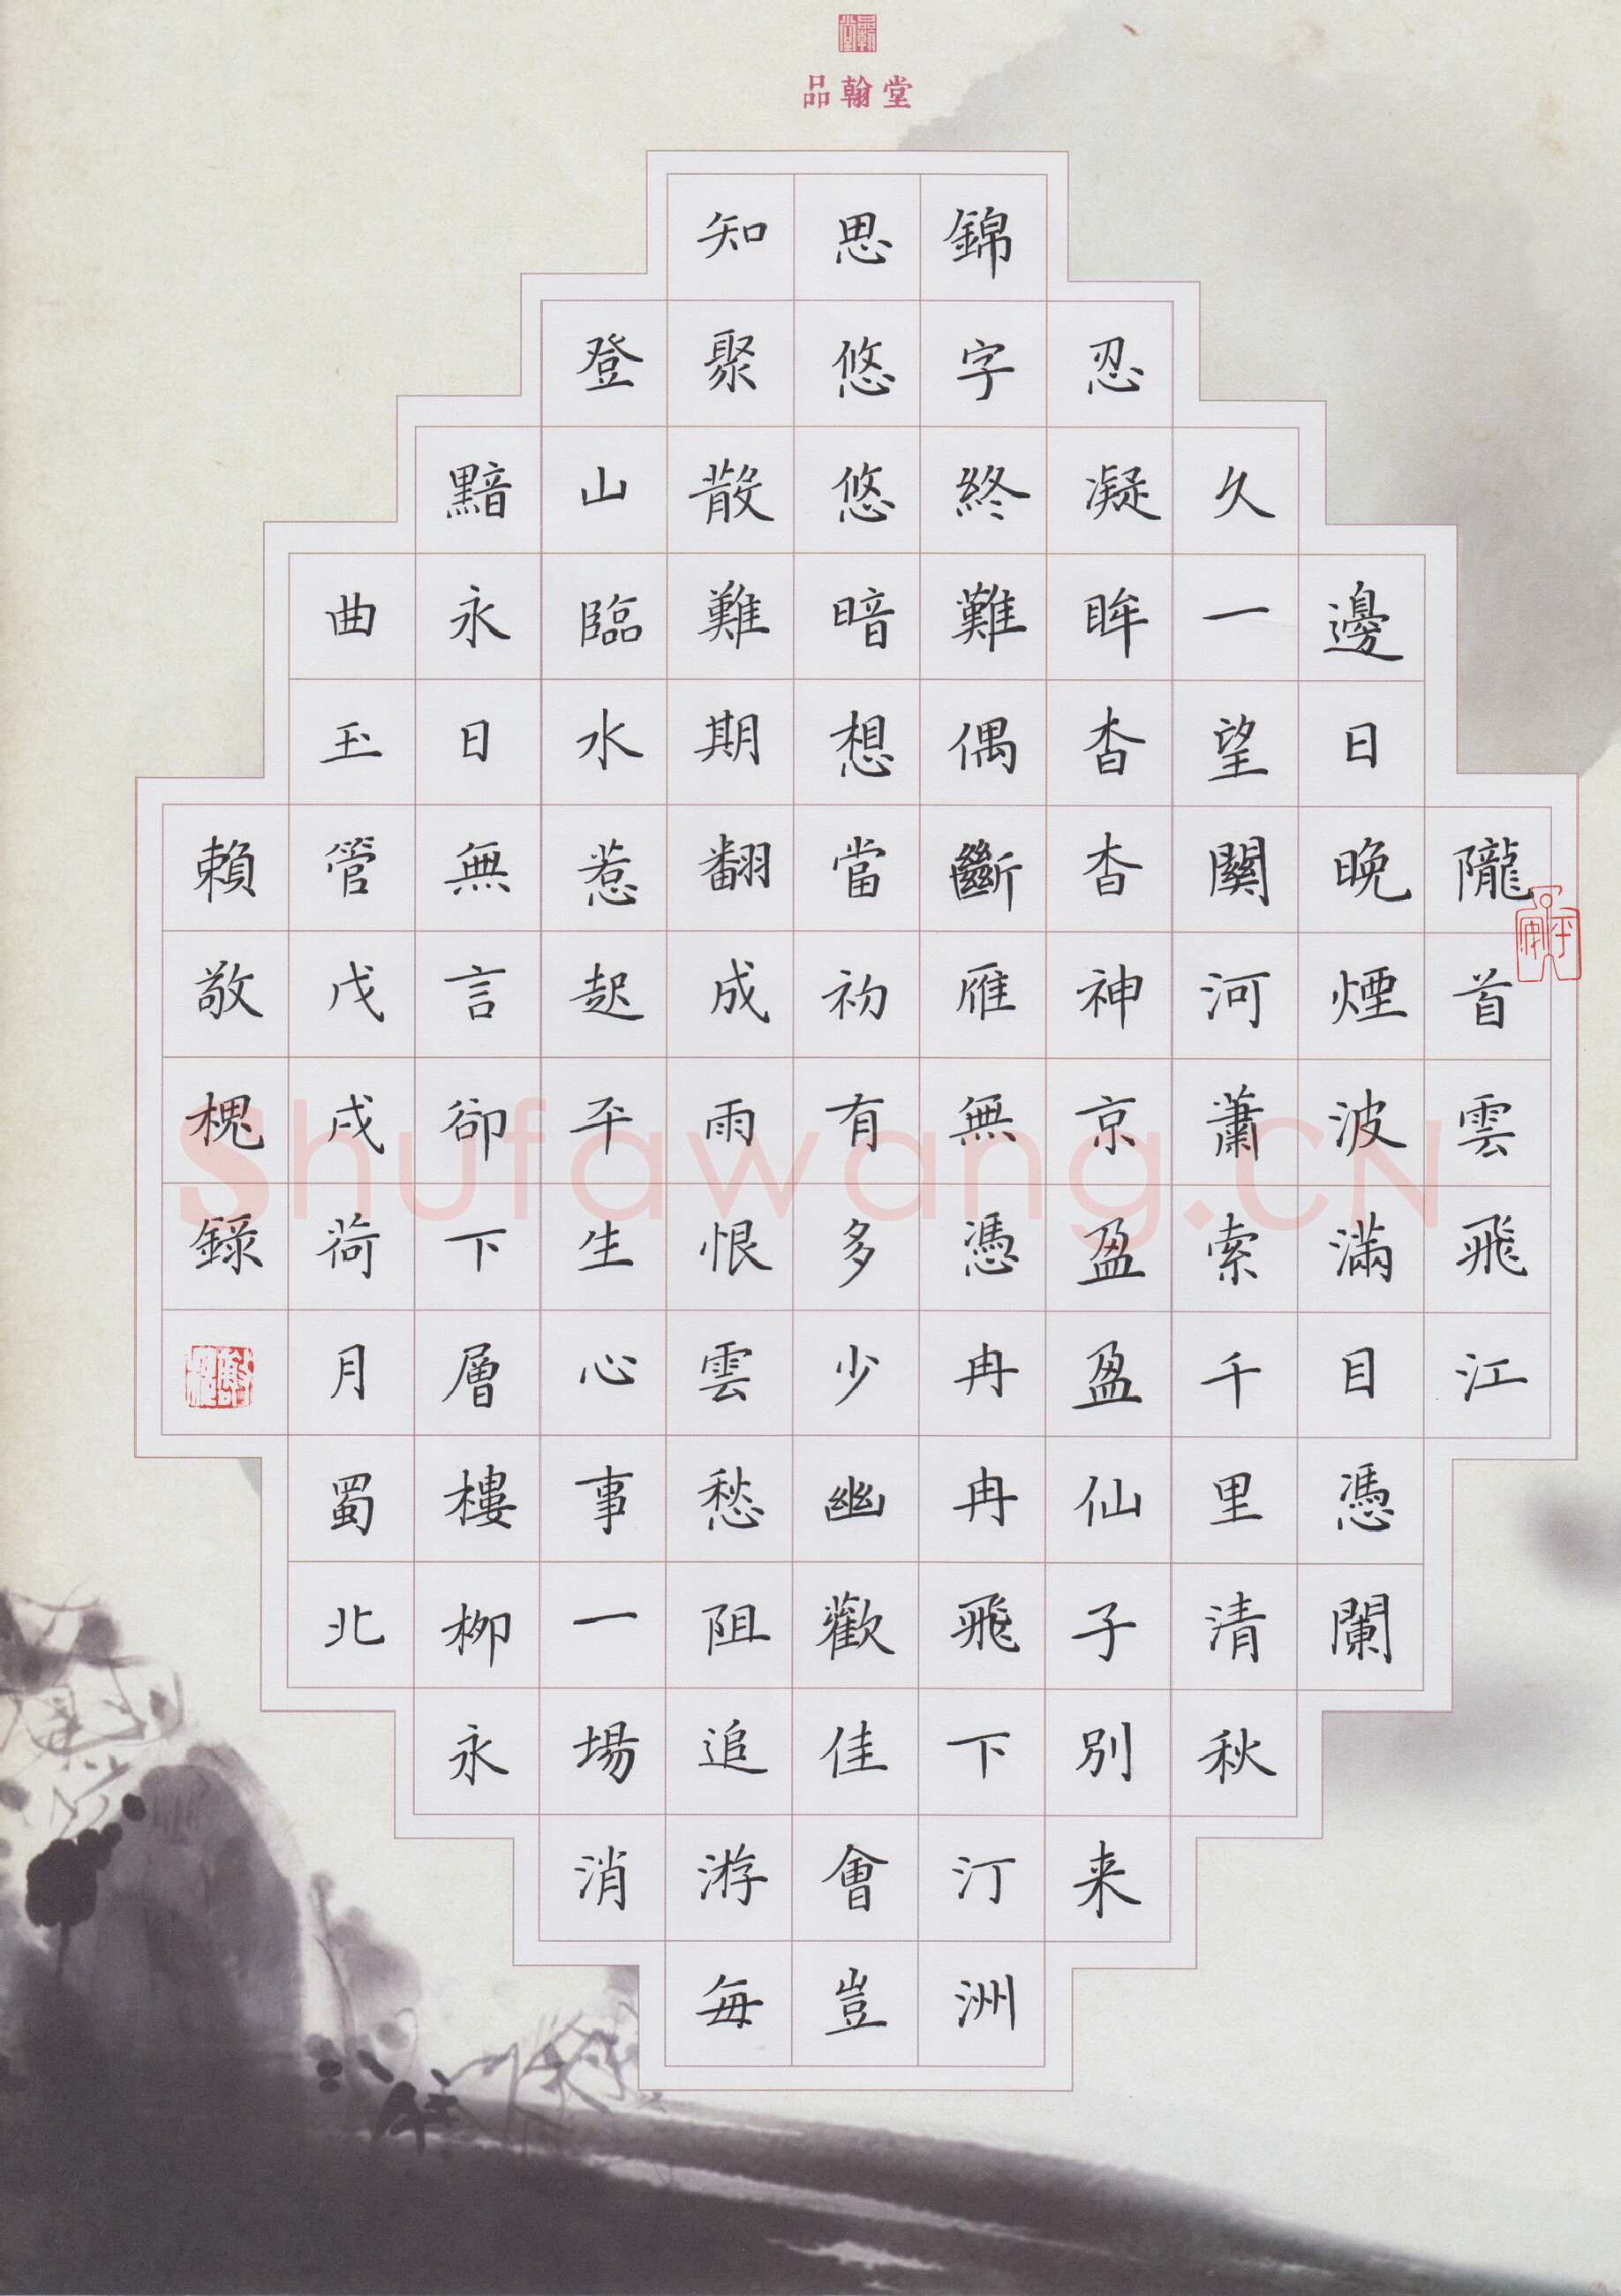 品翰堂
隴首雲飛江
邊日晚煙波滿目憑闌
久一望關河蕭索千里清秋
忍凝眸杳杳神京盈盈仙子別来
錦字終難偶斷雁無憑冉冉飛下汀洲
思悠悠暗想當初有多少幽歡佳會豈
知聚散難期翻成雨恨雲愁阻追游每
登山臨水惹起平生心事一場消
黯永日無言卻下層樓柳永
曲玉管戊戌荷月蜀北
賴敬槐錄
shufawang.CN